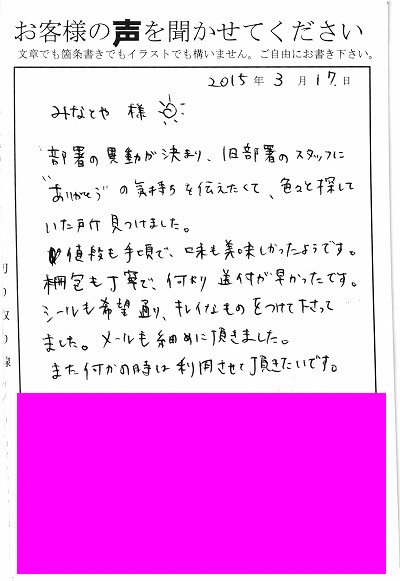 お客様の声を聞かせてください
文章でも箇条書きでもイラストでも構いません。ご自由にお書き下さい。
2015年 3月 17日
みなとや 様
部署の異動が決まり、旧部署のスタッフに
"ありがとう"の気持ちを伝えたくて、色々と探して
いた所 見つけました。
値段も手頃で、味も美味しかったようです。
梱包も丁寧で、何より 送付が早かったです。
シールも希望通り、キレイなものをつけて下さって
ました。メールも細めに頂きました。
また何かの時は利用させて頂きたいです。